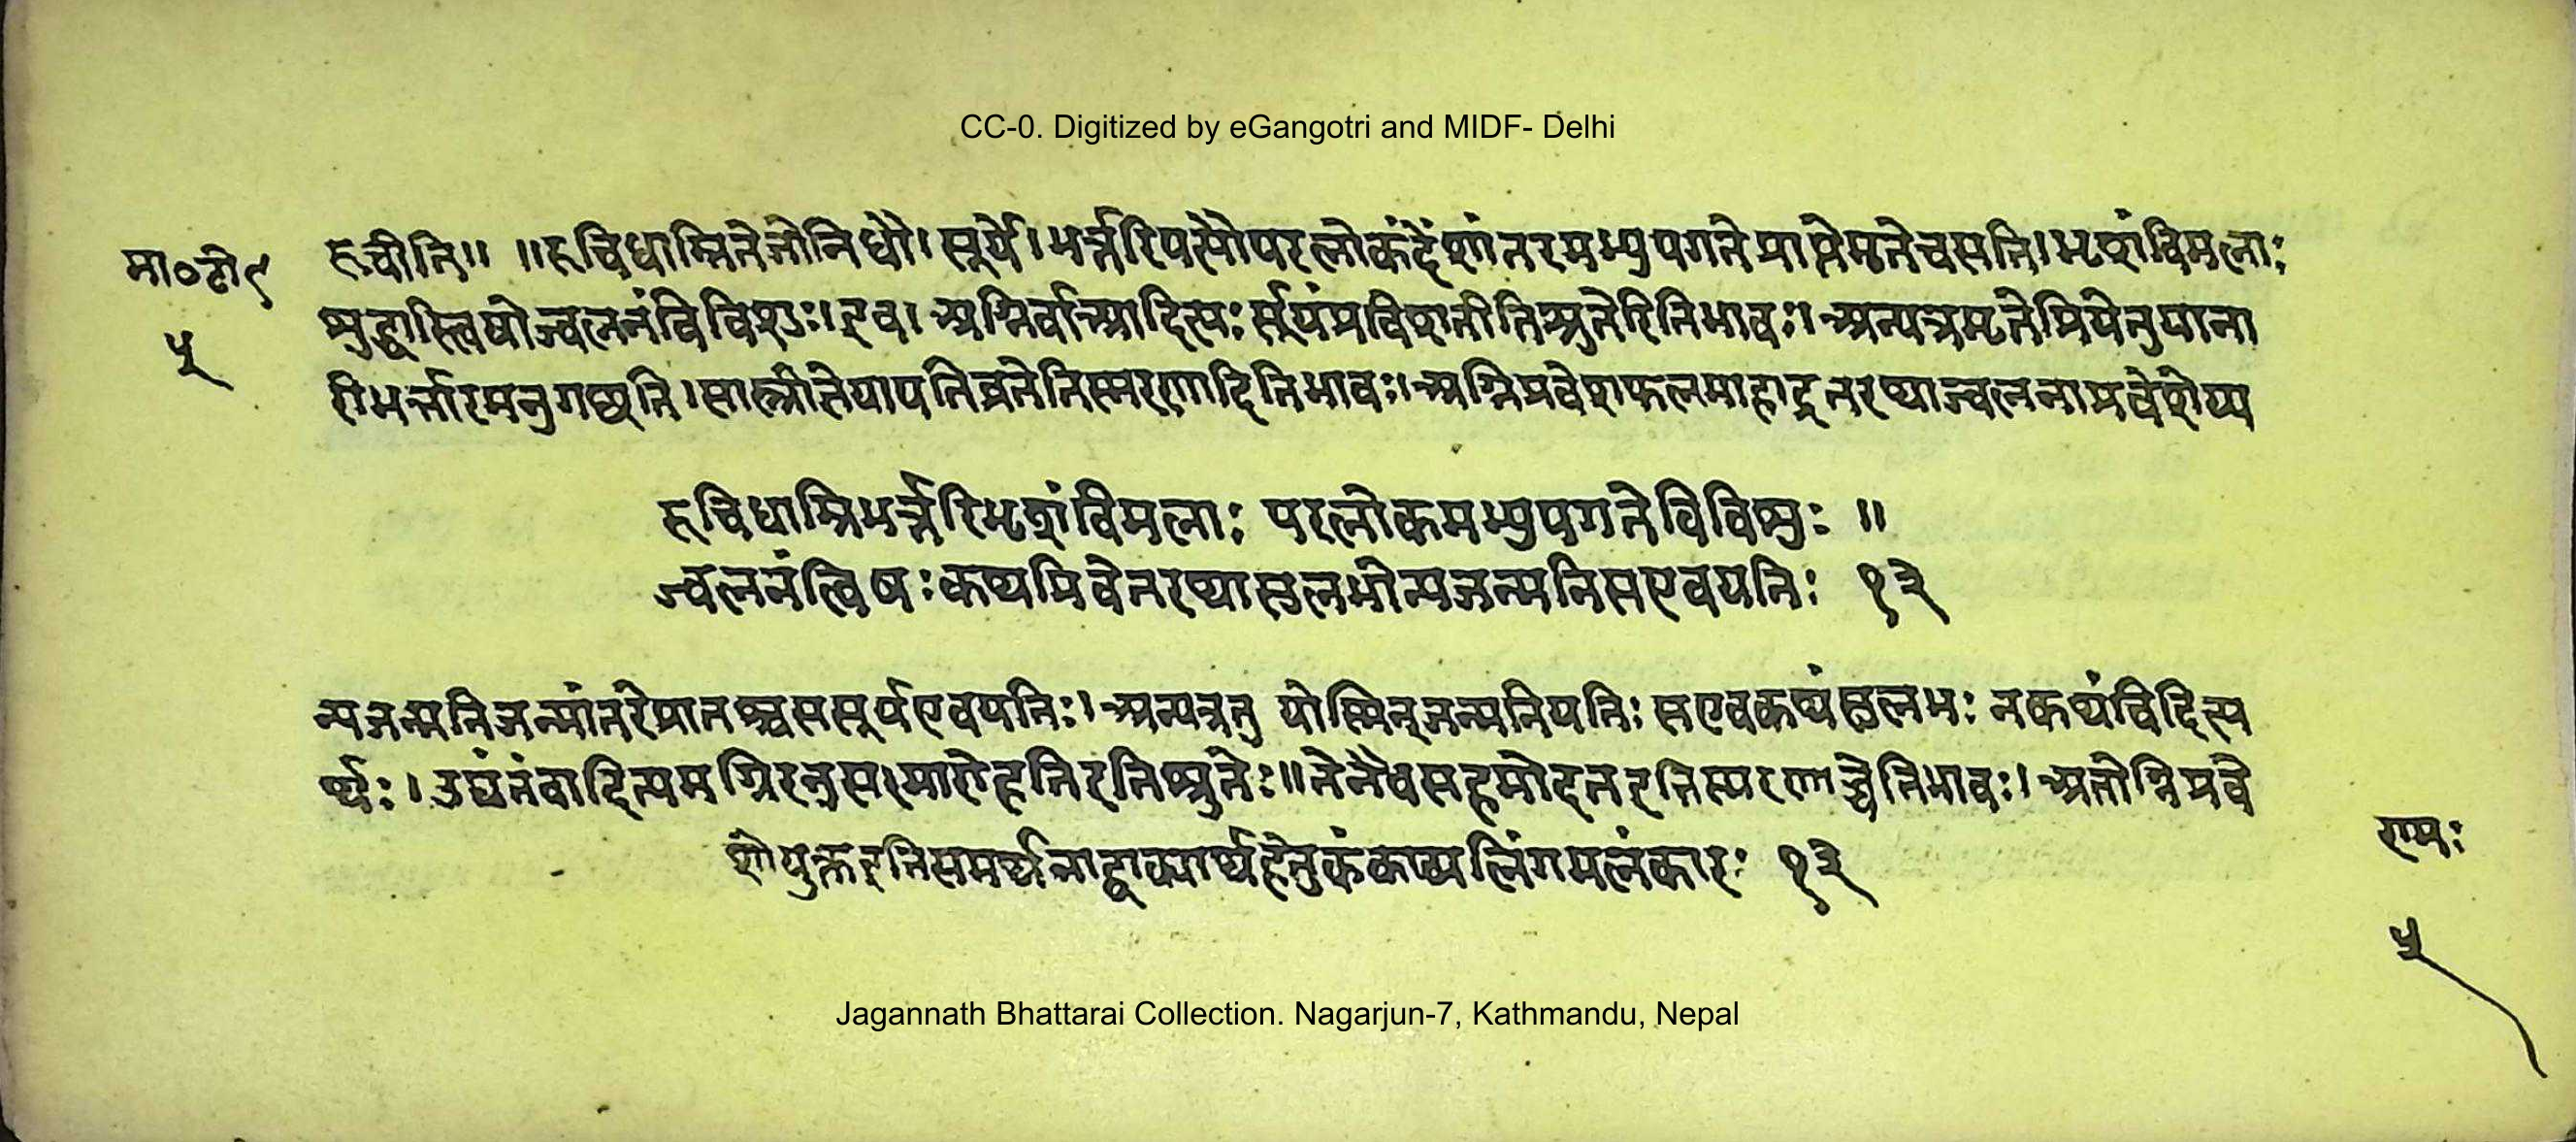 CC-0. Digitized by eGangotri and MIDF- Delhi
मा॰टी९
५
रुचीति॥ ॥रुचिधाम्नितेजोनिधौ।सूर्ये।भर्त्तरिपत्यौपरलोकंदेंशांतरमभ्युपगतेप्राप्तेमृतेचसति।भृशंविमलाः
शुद्धास्त्विषोज्वलनंविविशुः।इव।अग्निर्वाआदित्यः सूर्यंप्रविशतीतिश्रुतेरितिभावः।अन्यत्रमृतेप्रियेनुयाना
रीभर्त्तारमनुगच्छति।सास्त्रीतेयापतिव्रतेतिस्मरणादितिभावः।अग्निप्रवेशफलमाहाइतरथाज्वलनाप्रवेशेप्य
रुचिधाम्निभर्त्तरिभृशंविमलाः परलोकमभ्युपगतेविविशुः ॥
ज्वलनंत्विषःकथमिवेतरथासुलभोन्यजन्मनिसएवपतिः १३
न्यजन्मनिजन्मांतरेप्रातश्चससूर्यएवपतिः।अन्यत्रतु योस्मिन्जन्मनिपतिः सएवकथंसुलभः नकथंचिदित्य
र्थः।उद्यंतंवादित्यमग्निरनुसमारोहतिइतिश्रुतेः॥तेनैवसहमोदतइतिस्मरणाच्चेतिभावः।अतोग्निप्रवे
शोयुक्तइतिसमर्थनाद्वाक्यार्थहेतुकंकाव्यलिंगमलंकारः १३
रामः
५
Jagannath Bhattarai Collection. Nagarjun-7, Kathmandu, Nepal